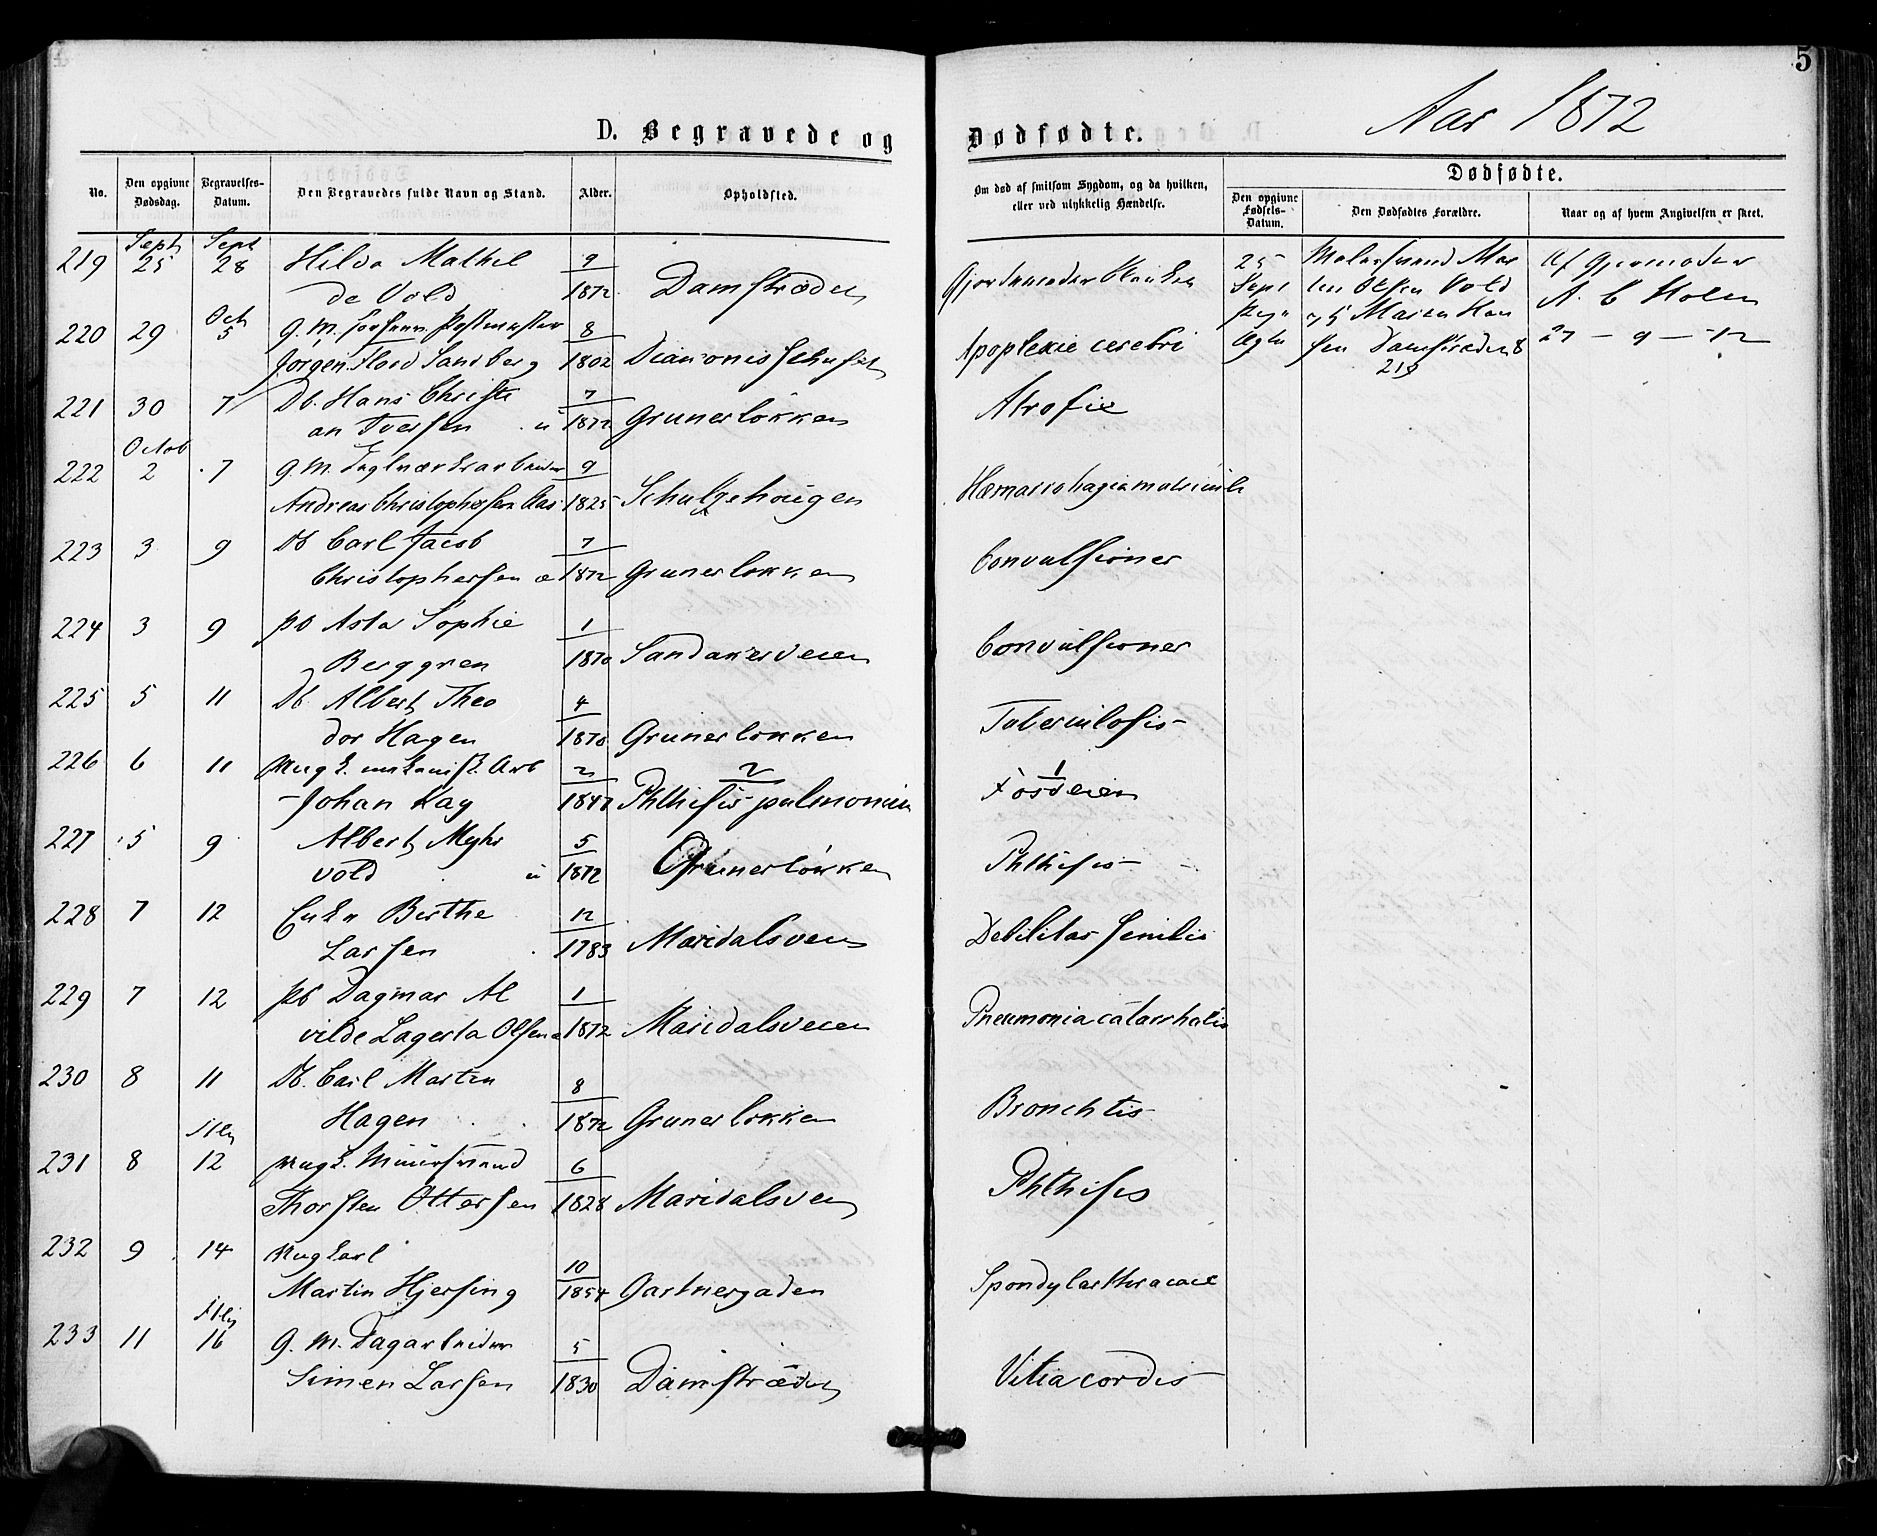 5
Aar 1872
D. Begravede og Dødfødte.
No.
Den opgivne Dødsdag.
Begravelses-Datum.
Den Begravedes fulde Navn og Stand.
Alder.
Opholdsted.
Om død af smitsom Sygdom, og da hvilken, eller ved ulykkelig Hændelse.
Dødfødte.
Den opgivne Fødsels-Datum.
Den Dødfødtes Forældre.
Naar og af hvem Angivelsen er skeet.
219 Sept 25 Sept 28 Hilda Mathil 9
de Vold 1872 Damstrædet
25 Sept
Olsen Vold
Maren Han
sen Damstrædet 8
219
Af Gjormoder
A. C. Holm
27 - 9 - 72
220 29 Oct 5 G. M. Postmester 8
Jørgen Flood Sandberg 1802 Apoplexie cerebri
221 30 7 Db. Hans Christi 7
an Iversen u 1872 Grunerløkken Atrofie
222 Octob 2 7 G. M. 9
Andreas Christophersen Aas 1825 Schultzehougen
223 3 9 Db Carl Jacob 7
Christophersen æ 1872 Grunerløkken Convulsioner
224 3 9 Pb Asta Sophie 1
Berggren 1870 Sandakerveien Convulsioner
225 5 11 Db. Albert Theo 4
dor Hagen 1870 Grunerløkken Tuberculosis
226 6 11 Ungk. mekanisk. Arb 2
Johan Kag 1847 2 Phthisis pulmonum 1 Fosveien
227 5 9 Albert Myhr 5
vold u 1872 Grunerløkken Phthisis
228 7 12 Enke Berthe 12
Larsen 1783 Maridalsvein Debilitas senilis
229 7 12 Pb Dagmar Al 1
vilde Lagerta Olsen æ 1872 Maridalsveien Pneumonia catarrhalis
230 8 11 Db. Carl Martin 8
Hagen 1872 Grunerløkken Bronchtis
231 8 12 Ungk. Muursvend 6
Thorsten Ottersen 1828 Maridalsvein Phthisis
232 9 14 Ungkarl 10
Martin Hjersing 1854 Gartnergaden Spondylarthrocace
233 11 16 G. M. Dagarbeider 5
Simen Larsen 1830 Damstrædet Vitia cordis